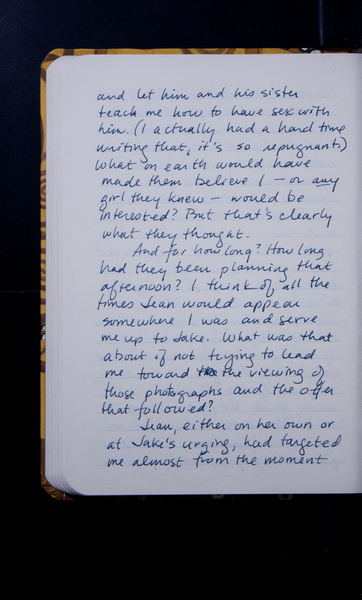 and let him and his sister
teach me how to have sex with
him. (I actually had a hard time
writing that, it's so repugnant.)
What on earth would have
made them believe I – or any
girl they knew – would be
interested? But that's clearly
what they thought.
And for how long? How long
had they been planning that
afternoon? I think of all the
times Jean would appear
somewhere I was and serve
me up to Jake. What was that
about if not trying to lead
me toward the the viewing of
those photographs and the offer
that followed?
Jean, either on her own or
at Jake's urging, had targeted
me almost from the moment